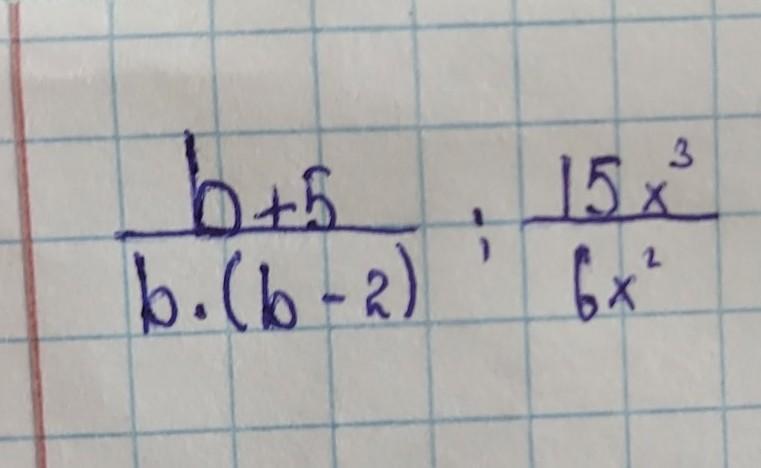 \frac{b+5}{b \cdot (b-2)} ; \frac{15x^3}{6x^2}